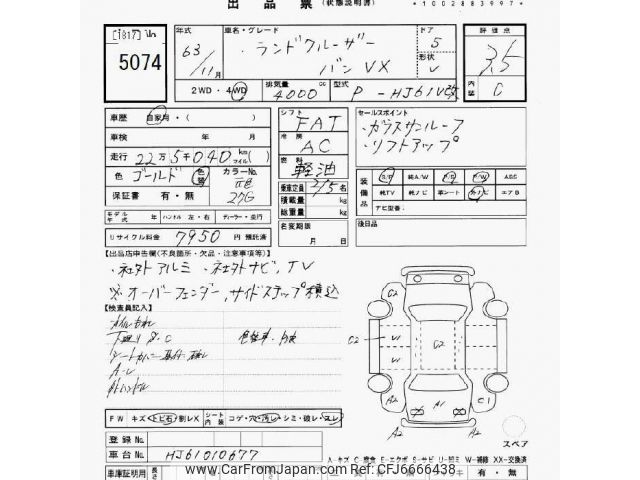 出品票 (状態説明書) *1002883997*
5074
年式 63/11月
車名・グレード ランドクルーザー バンVX
ドア 5
形状 V
評価点 3.5
内装 C
2WD・4WD
排気量 4000 cc
型式 P-HJ61V改
車歴 自家用・( )
車検 年 月
走行 22万5千040 km (マイル)
色 ゴールド 色替
カラーNo. 元色 27G
保証書 有・無
シフト FAT
冷房 AC
燃料 軽油
乗車定員 2/5名
積載量 kg
総重量 kg
名変期限 月 日
セールスポイント
・ガラスサンルーフ
・リフトアップ
装備品 純A/W P/S P/W ABS
純TV 純ナビ 革シート カナビ エアB
ナビ型番・
後日品
モデル年式 年 ハンドル 左・右 ディーラー・並行
リサイクル料金 7950 円 預託済
【出品店申告欄(不良箇所・欠品・注意事項等)】
・社外アルミ ・社外ナビ,TV
※オーバーフェンダー,サイドステップ積込
【検査員記入】
FW キズ・トビ石・割レX シート内装 コゲ・穴・汚レ・シミ・破レ・スレ
登録No.
車台No. HJ61010677
車庫証明用
C2 C2 V1 V1 C2 A2 A1 C1 A2 A2
スペア
A-キズ C-腐食 E-エクボ S-サビ U-凹ミ W-補修 XX-交換済
有・無
www.CarFromJapan.com Ref:CFJ6666438